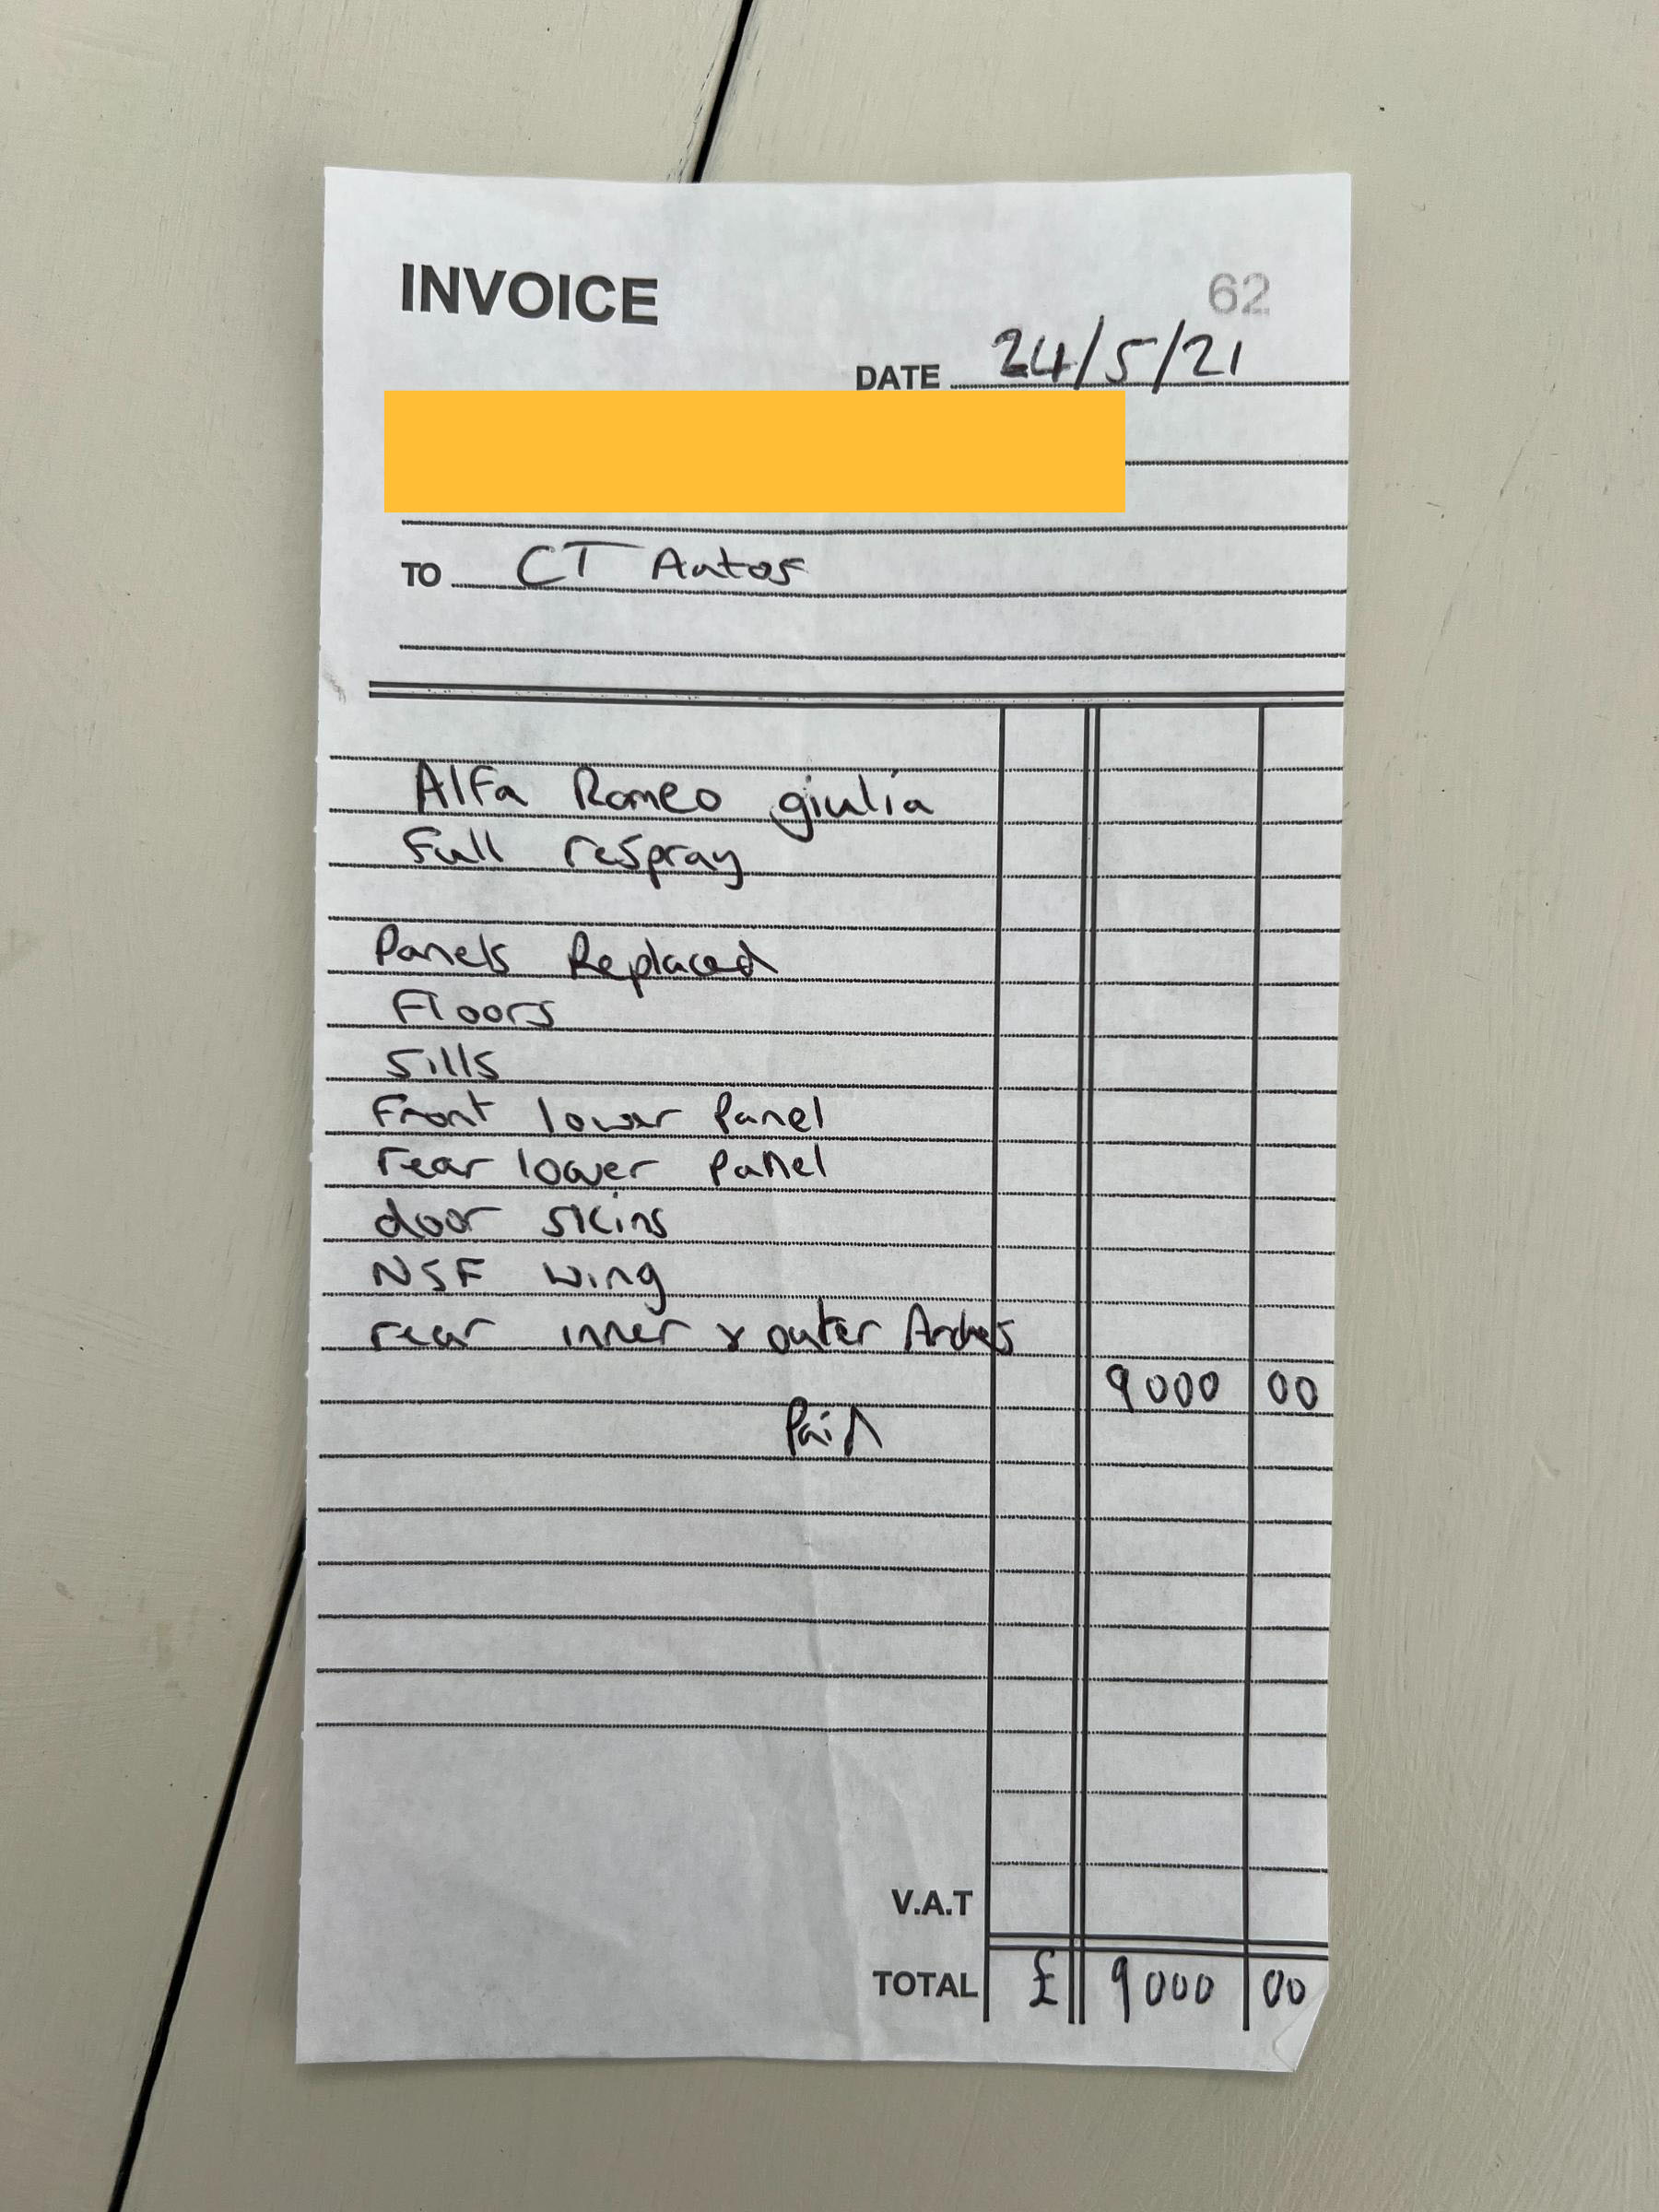 INVOICE
62
DATE 24/5/21
TO CT Autos
Alfa Romeo giulia
Full respray
Panels Replaced
Floors
Sills
Front lower Panel
rear lower Panel
door skins
NSF wing
rear inner & outer Arches
9000 00
Paid
V.A.T
TOTAL £ 9000 00